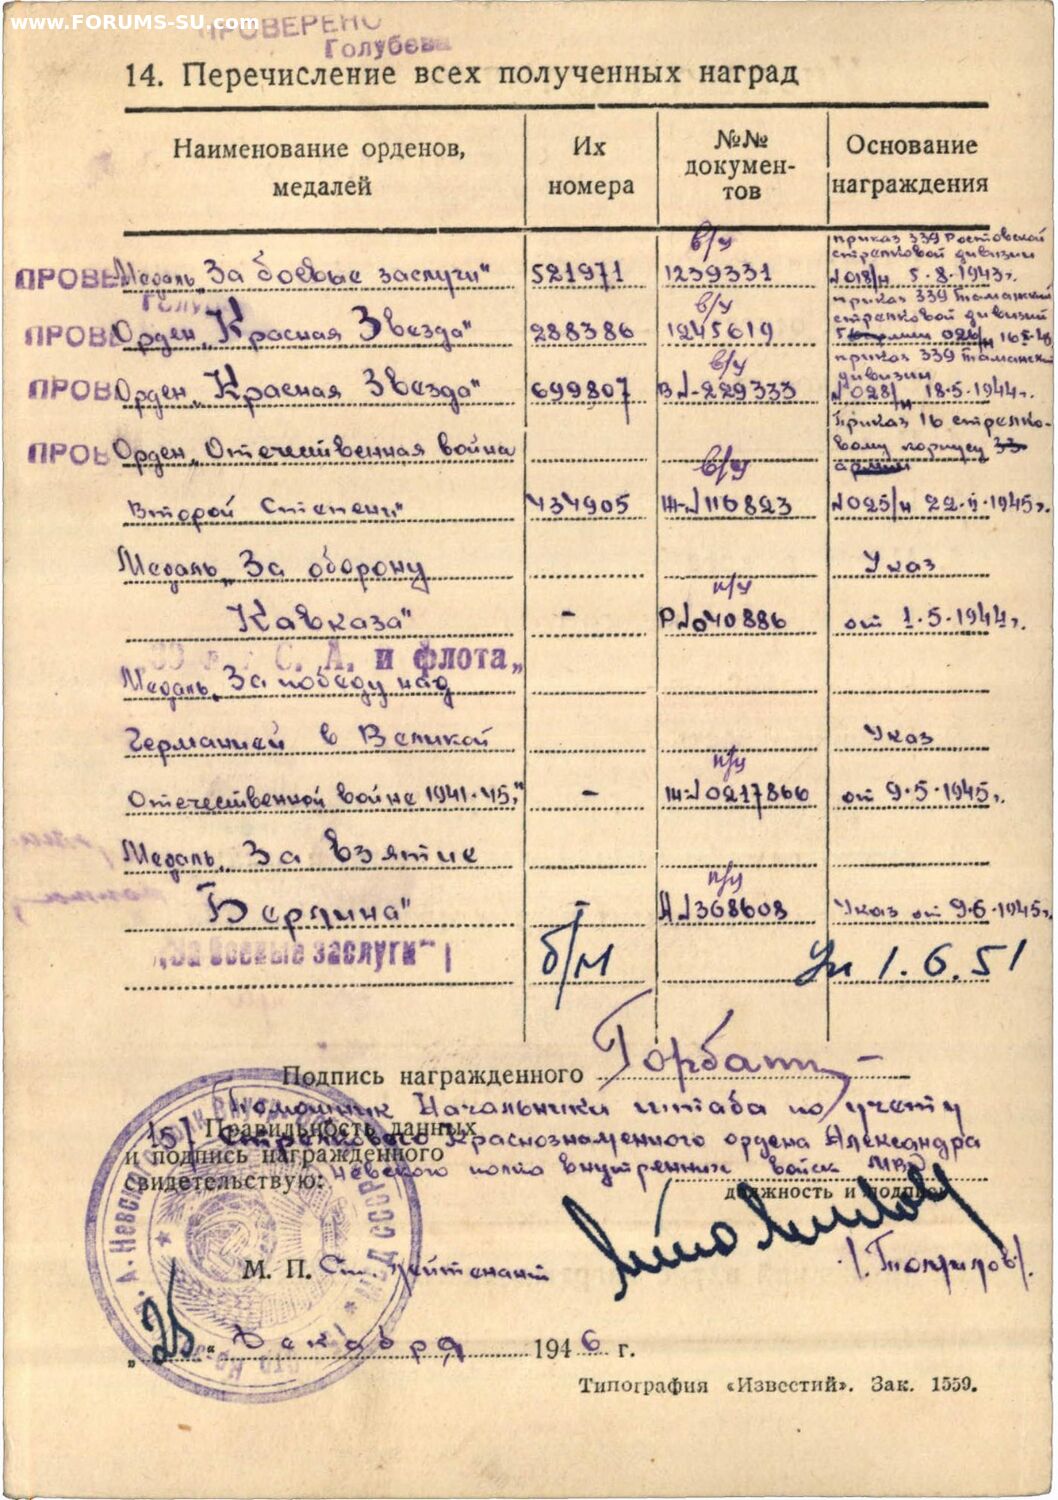 www.FORUMS-SU.com
ПРОВЕРЕНО
Голубева
14. Перечисление всех полученных наград
Наименование орденов, медалей | Их номера | №№ документов | Основание награждения
в/у приказ 339 Ростовской
стрелковой дивизии
ПРОВЕ Медаль „За боевые заслуги" 521971 1239331 №018/н 5.8.1943г.
в/у приказ 339 Таманской
стрелковой дивизии
ПРОВ Орден „Красная Звезда" 288386 1245619 026/н
в/у приказ 339 Таманской
дивизии
ПРОВ Орден „Красная Звезда" 699807 В№-229333 №028/н 18.5.1944г.
Приказ 16 стрелко-
вому корпусу 33
армии
ПРОВ Орден „Отечественная война
в/у
Второй Степени" 434905 Ж-№116823 №025/н 22.II.1945г.
Медаль „За оборону Указ
п/у
Кавказа" - Р№040886 от 1.5.1944г.
С. А. и флота„
Медаль „За победу над
Германией в Великой Указ
п/у
Отечественной войне 1941-45г" - Ж-№0217866 от 9.5.1945г.
Медаль „За взятие
п/у
Берлина" - А№368608 Указ от 9.6.1945г.
„За боевые заслуги" б/н Ук 1.6.51
Подпись награжденного Горбат
Помошник Начальники штаба по учету
Правильность данных
и подпись награжденного
свидетельствую:
151 Стрелкового Краснознаменного ордена Александра
Невского полка внутренних войск МВД
должность и подпись
М. П. Ст. Лейтенант
„25" Декабря 1946 г.
Типография «Известий». Зак. 1559.